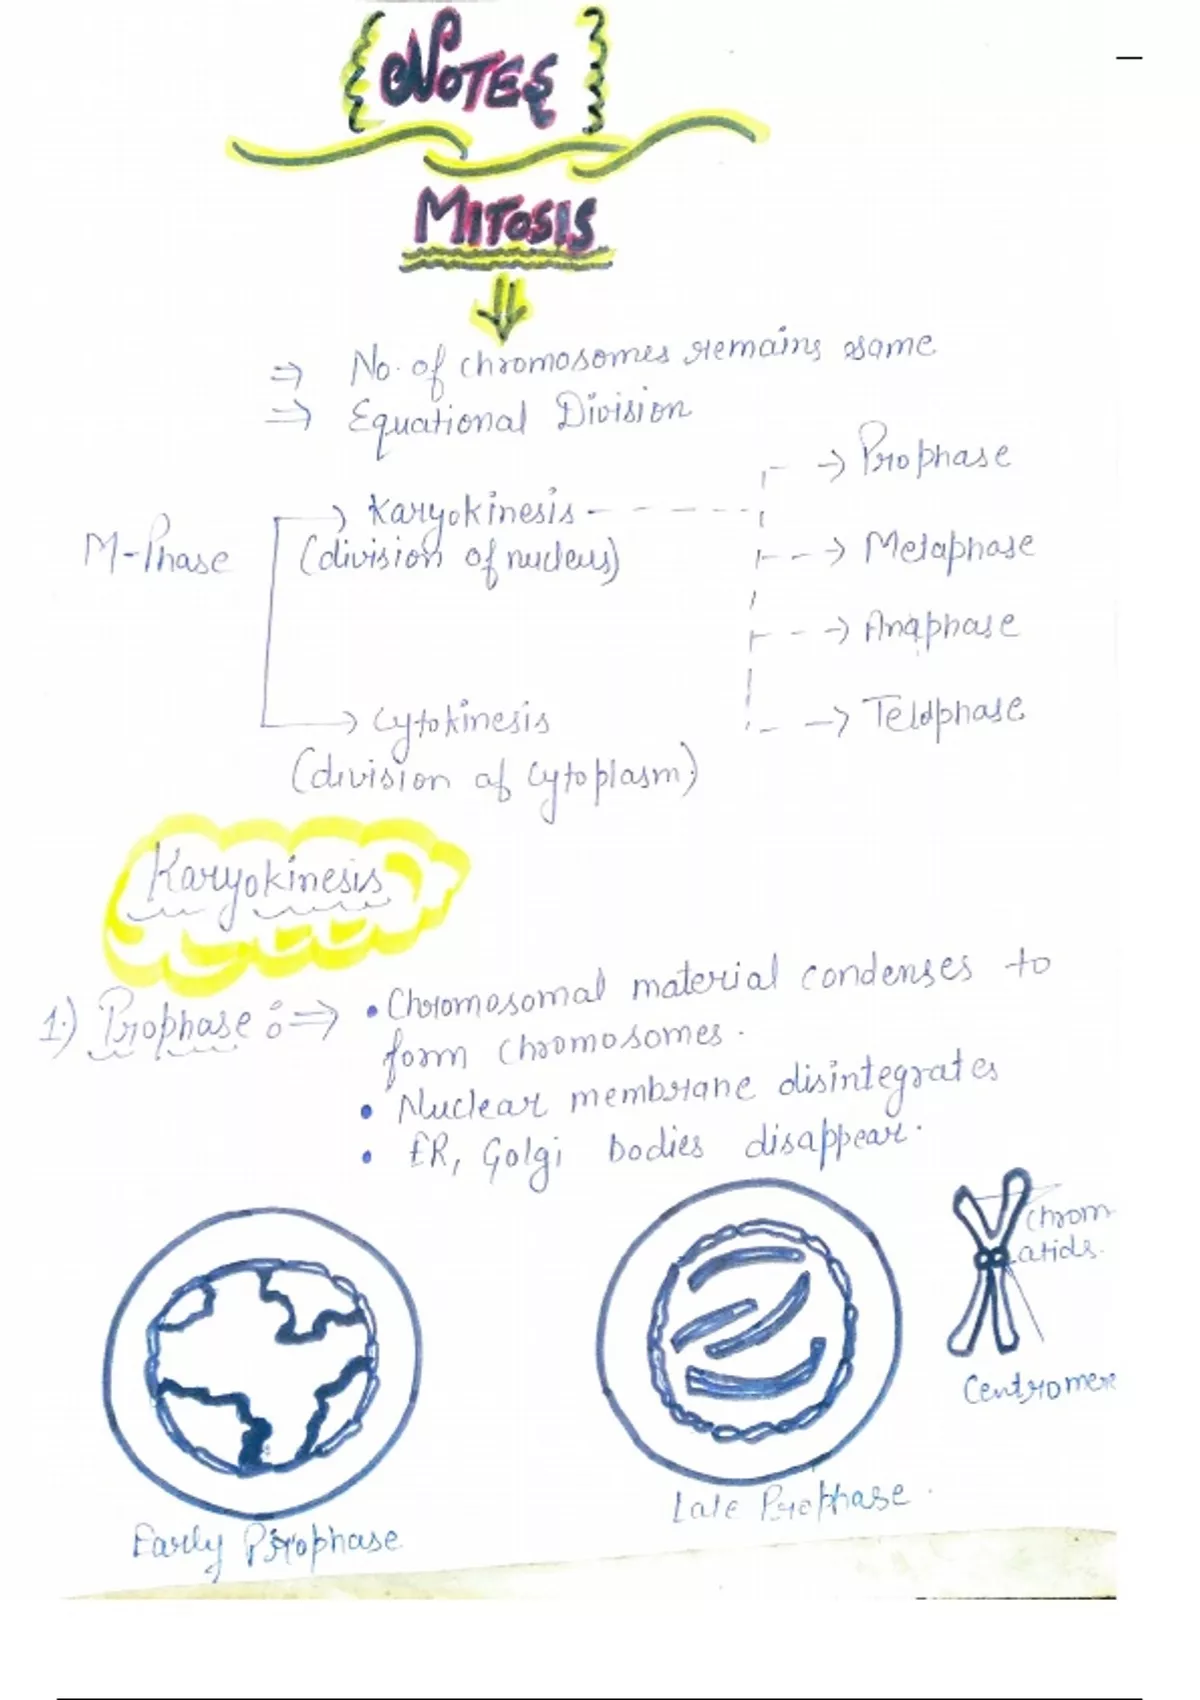 NOTES
MITOSIS
⇒ No. of chromosomes remains same
⇒ Equational Division
→ Prophase
M-Phase → Karyokinesis
(division of nucleus)
→ Metaphase
→ Anaphase
→ Telophase
→ Cytokinesis
(division of Cytoplasm)
Karyokinesis
1.) Prophase :⇒ • Chromosomal material condenses to
form chromosomes.
• Nuclear membrane disintegrates
• ER, Golgi bodies disappear.
Chrom
atids.
Centromere
Early Prophase
Late Prophase.